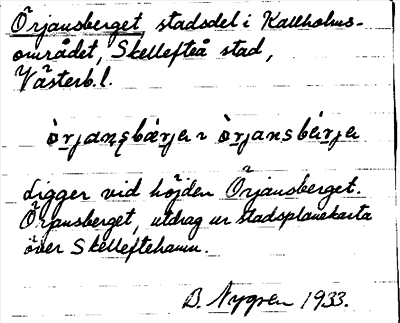 Örjansberget, stadsdel i Kallholms-
området, Skellefteå stad,
Västerb.l.
òrjansbærjer òrjansbérjer
Ligger vid höjden Örjansberget.
Örjansberget, utdrag ur stadsplanekarta
över Skelleftehamn.
B. Nygren 1933.